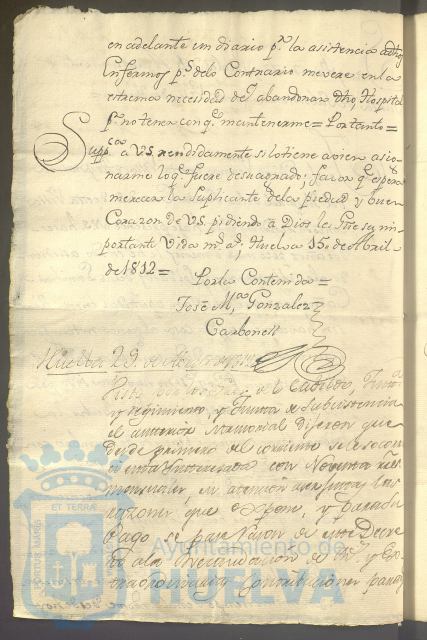 en adelante un diario pª. la asistencia
Enfermos ps. de lo Contrario me vere en la
estrema necesidad de abandonar dho, Hospital
pr. no tener con qe. mantenerme = Por tanto =
Suppca. a V.S. rendidamente si lo tiene a vien
narme lo qe. fuere de su agrado; favor qe. espera
merecer la Suplicante de la piedad y buen
Corazon de V.S. pidiendo a Dios les gue. su im-
portante Vida ms. as. Huelva 15 de Abril
de 1812 =
Por la Contenida =
Jose Mª. Gonzalez
Carbonell
Huelba 29 de
el Cabildo,
y regimiento, y Junta de Subsistencia
el anterior Memorial dijeron que
desde primero del corriente se le socor
a esta Interesada con Noventa rs.
mensuales, en atencion a ser justas las
razones que espone, y para su
Pago se pase Razon de este Decre
to a la Recaudacion de y Ex
traordinarias Contribuciones para
ET TERRÆ
PORTUS MARIS
Ayuntamiento de
HUELVA